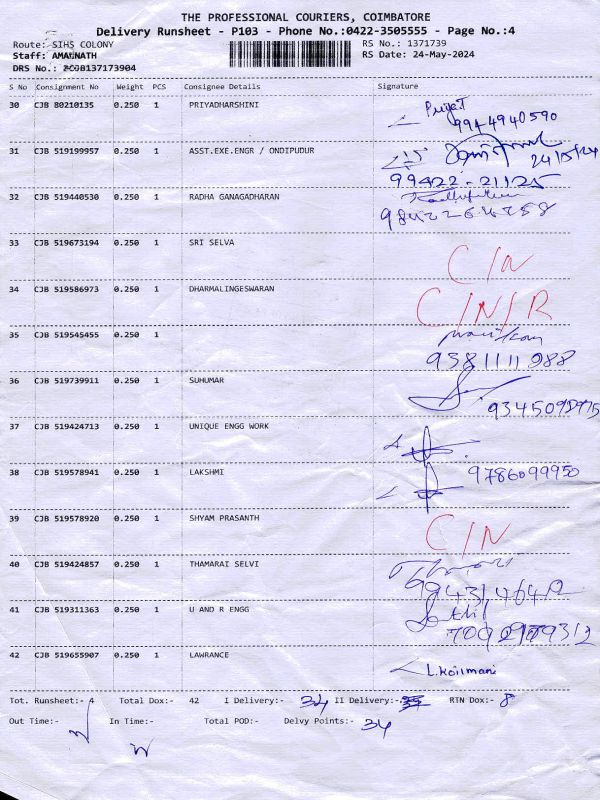 THE PROFESSIONAL COURIERS, COIMBATORE
Delivery Runsheet - P103 - Phone No.:0422-3505555 - Page No.:4
Route: SIHS COLONY RS No.: 1371739
Staff: AMARNATH RS Date: 24-May-2024
DRS No.: PC0B137173904
S No Consignment No Weight PCS Consignee Details Signature
30 CJB 80210135 0.250 1 PRIYADHARSHINI
9944940590
31 CJB 519199957 0.250 1 ASST.EXE.ENGR / ONDIPUDUR 24/5/24
99422-21125
32 CJB 519440530 0.250 1 RADHA GANAGADHARAN
33 CJB 519673194 0.250 1 SRI SELVA
C/N
34 CJB 519586973 0.250 1 DHARMALINGESWARAN
C/N/R
35 CJB 519545455 0.250 1
9381111088
36 CJB 519739911 0.250 1 SUHUMAR
37 CJB 519424713 0.250 1 UNIQUE ENGG WORK
38 CJB 519578941 0.250 1 LAKSHMI 9786099950
39 CJB 519578920 0.250 1 SHYAM PRASANTH
C/N
40 CJB 519424857 0.250 1 THAMARAI SELVI
41 CJB 519311363 0.250 1 U AND R ENGG
42 CJB 519655907 0.250 1 LAWRANCE
L.Koilmani
Tot. Runsheet:- 4 Total Dox:- 42 I Delivery:- 34 II Delivery:- RTN Dox:- 8
Out Time:- In Time:- Total POD:- Delvy Points:- 34